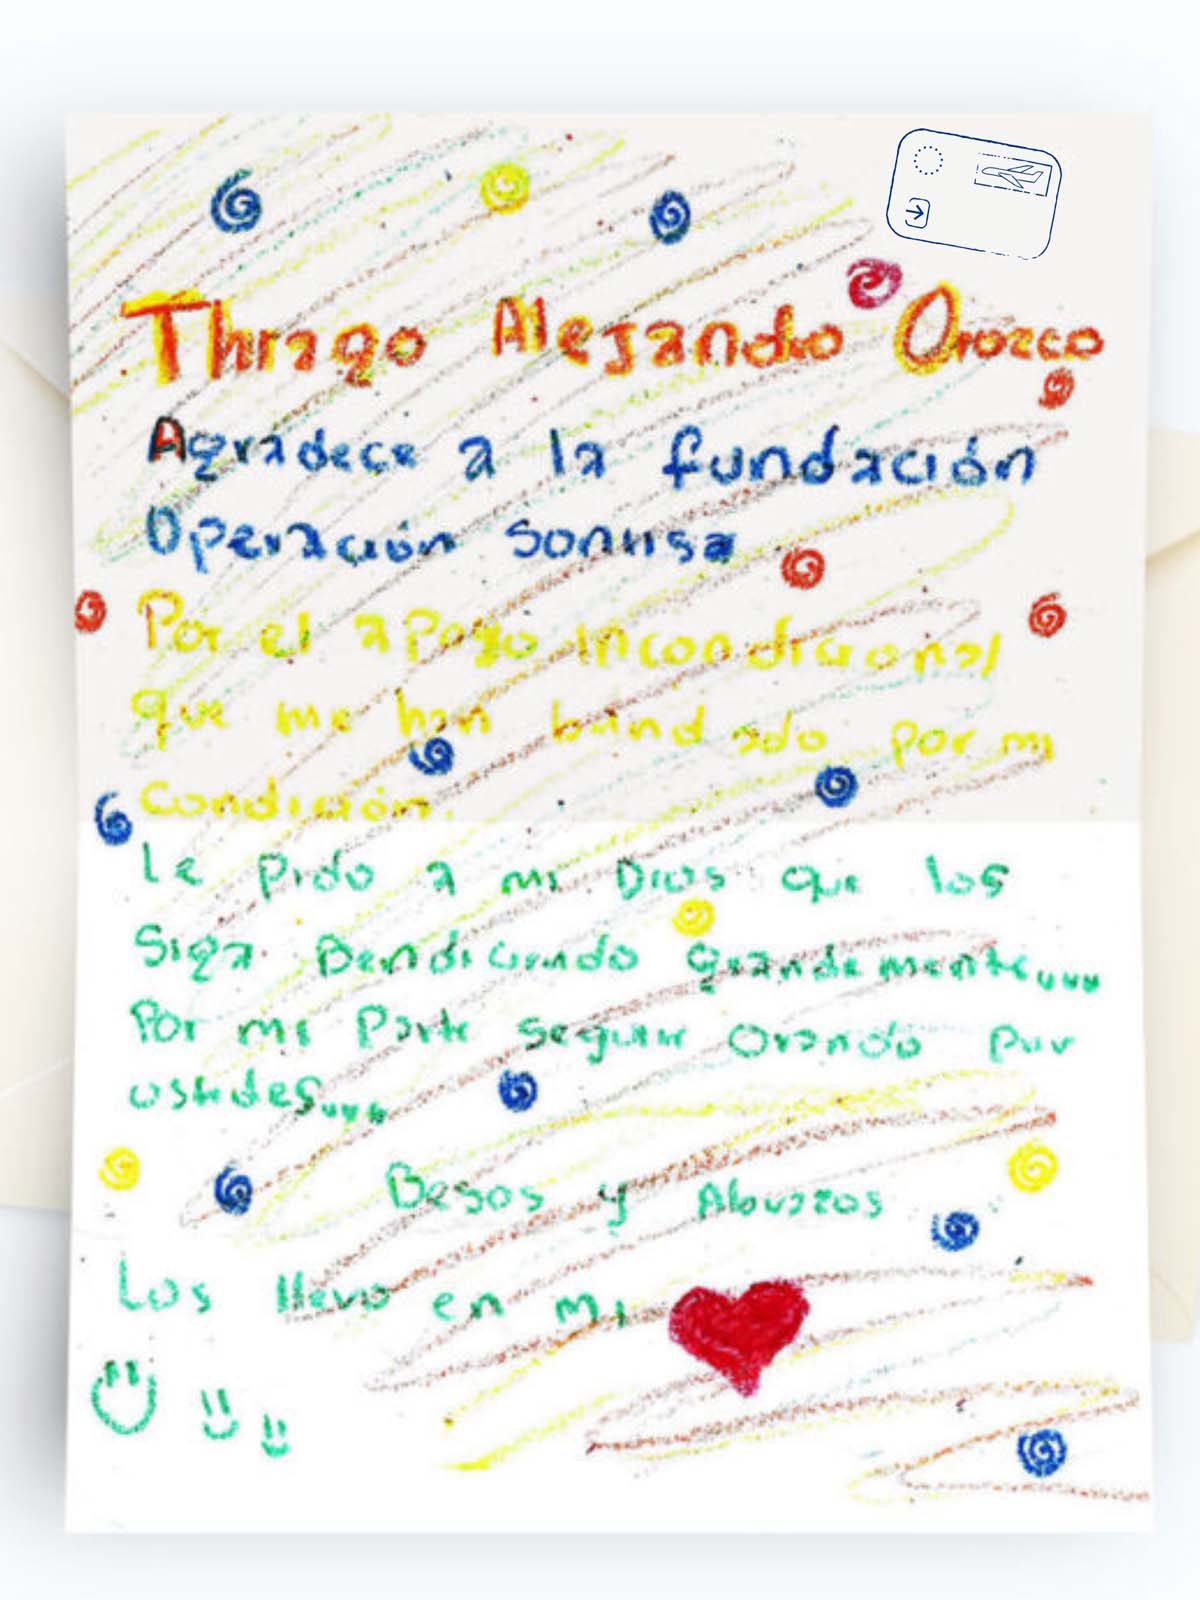 Thiago Alejandro Orozco
Agradece a la fundación
Operación Sonrisa
Por el apoyo incondicional
que me han brindado por mi
Condición.
Le pido a mi Dios que los
Siga Bendiciendo grandemente...
Por mi Parte Seguiré Orando por
ustedes...
Besos y Abrazos
Los llevo en mi